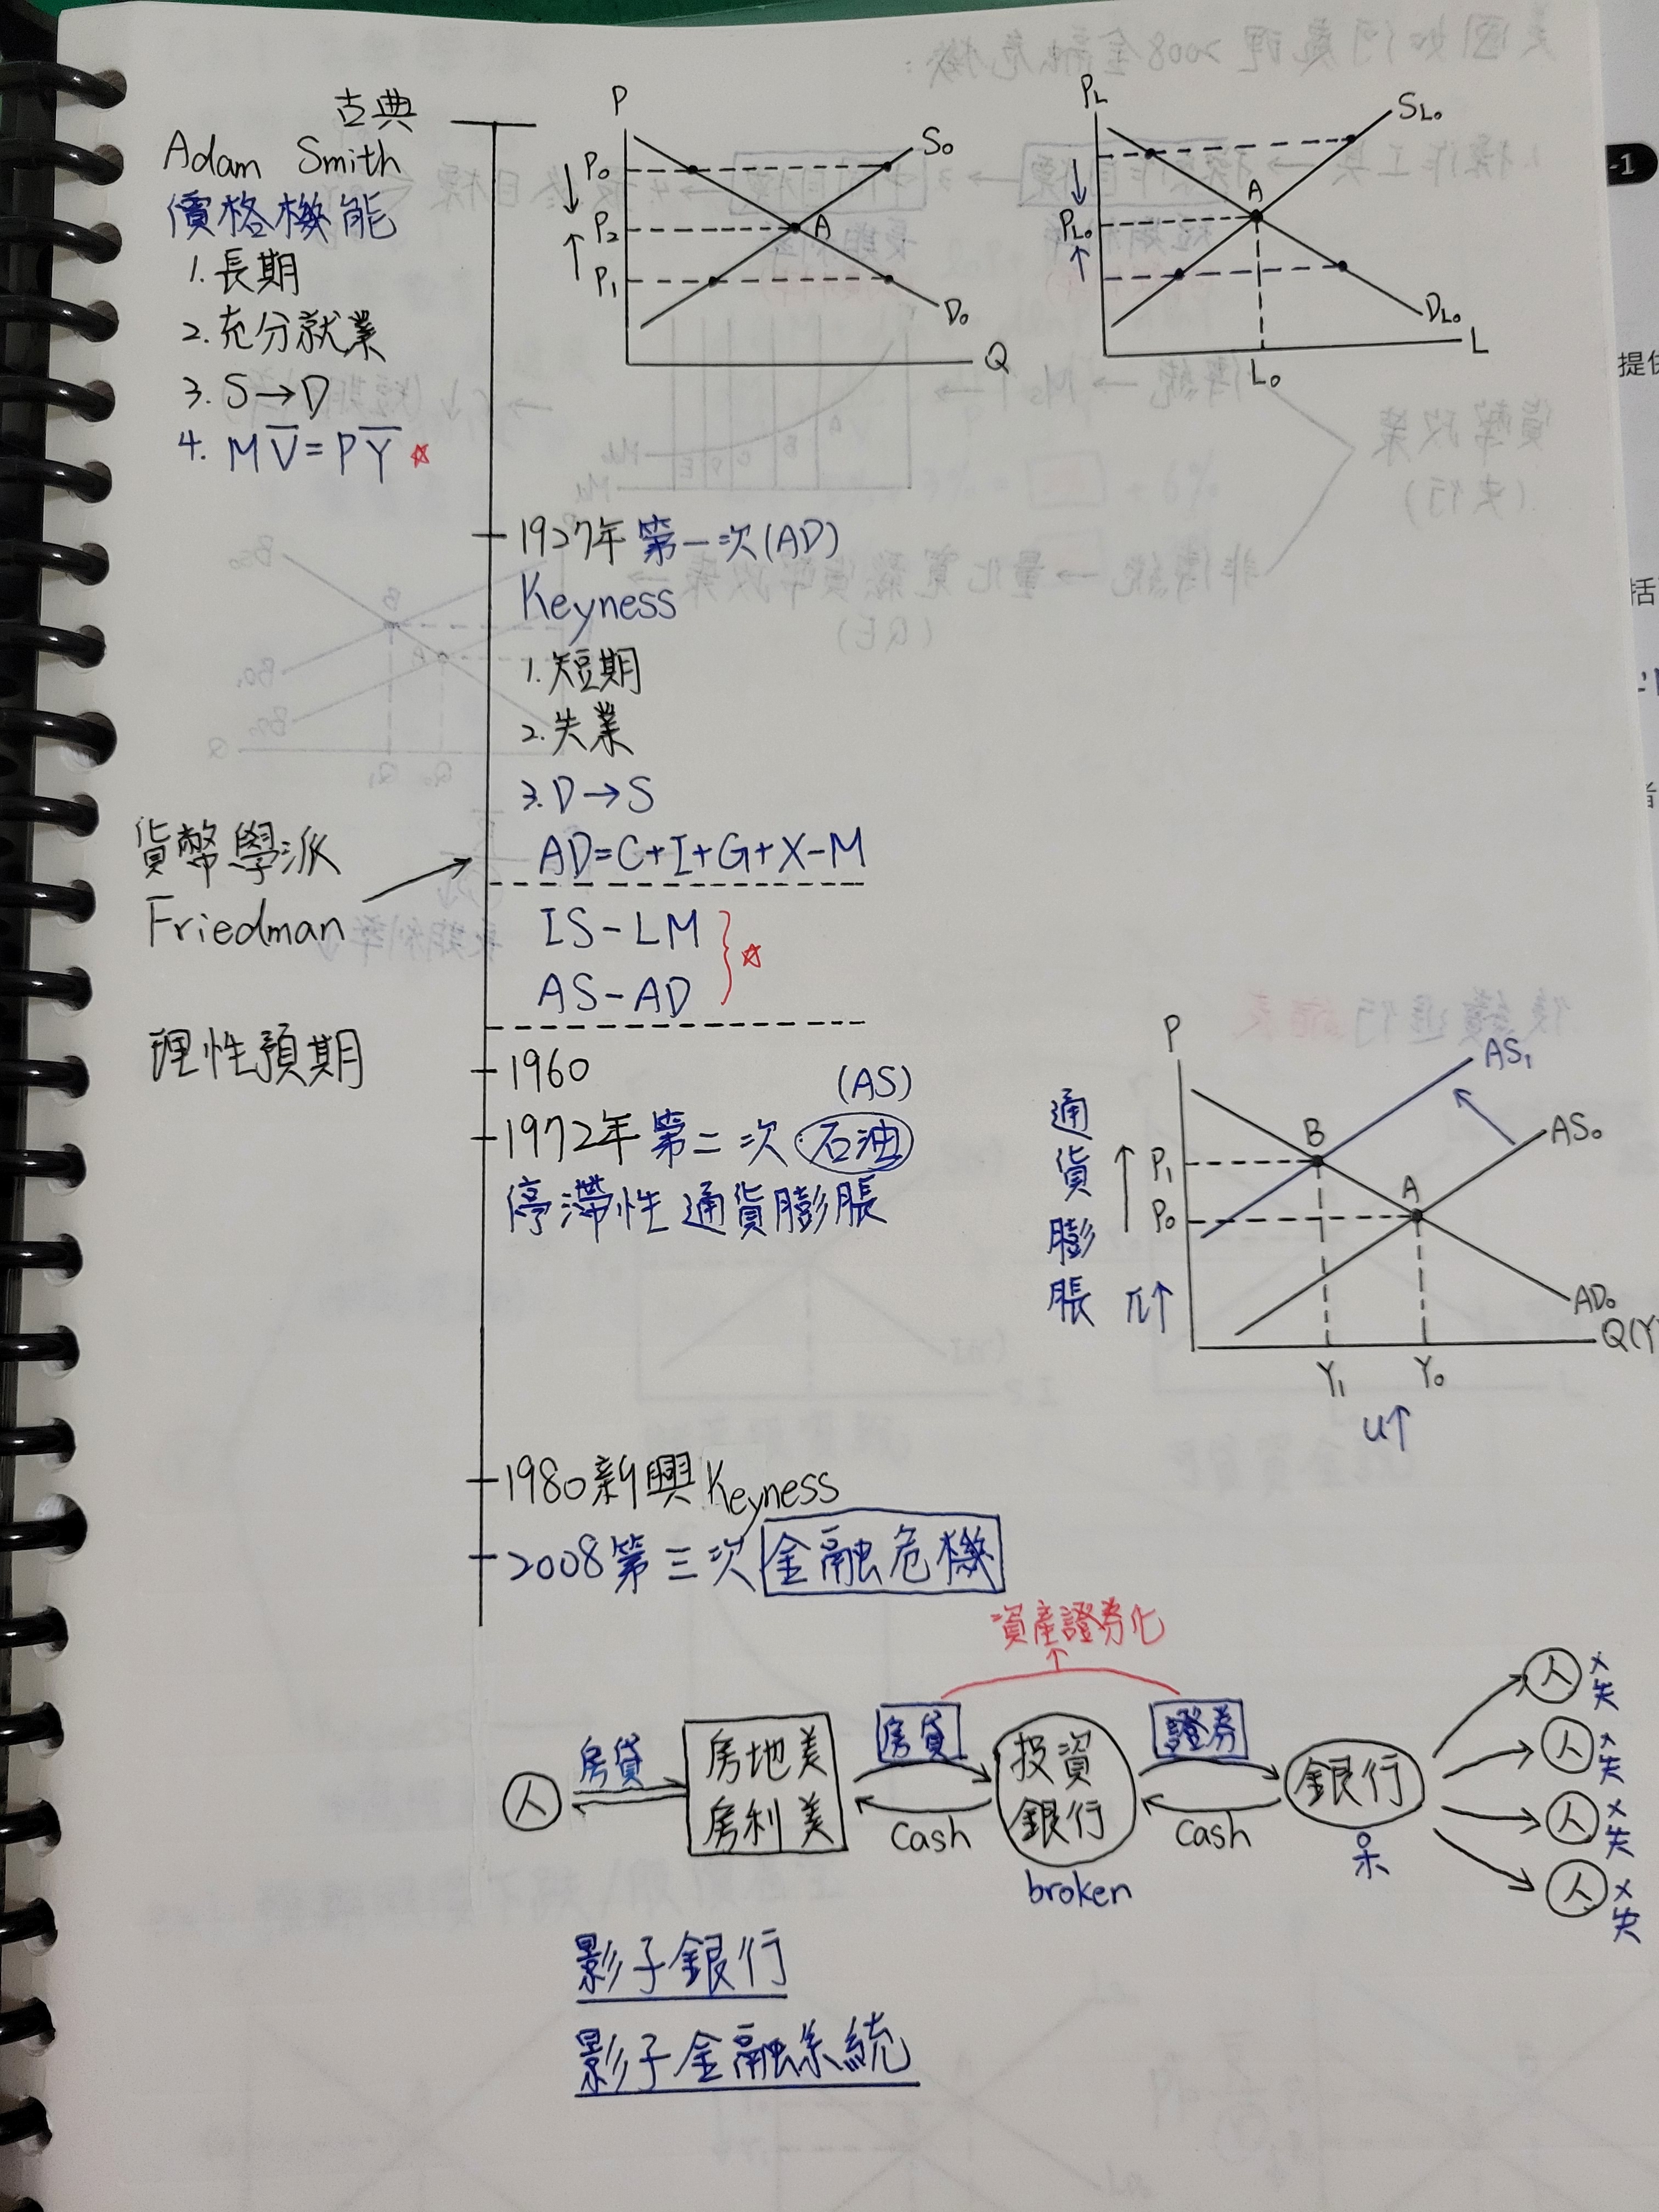 古典
Adam Smith
價格機能
1.長期
2.充分就業
3. S→D
4. MV̅=PY̅ ☆
P
P₀
P₂
P₁
S₀
A
D₀
Q
P_L
P_L₀
S_L₀
A
D_L₀
L
L₀
1927年 第一次(AD)
Keyness
1.短期
2.失業
3. D→S
AD=C+I+G+X-M
貨幣學派
Friedman
IS-LM
AS-AD
☆
理性預期
1960
(AS)
1972年 第二次 石油
停滯性通貨膨脹
通貨膨脹 π↑
P
P₁
P₀
B
A
AS₁
AS₀
AD₀
Q(Y
Y₁
Y₀
u↑
1980新興Keyness
2008第三次 金融危機
資產證券化
人
房貸
房地美
房利美
房貸
Cash
投資
銀行
broken
證券
Cash
銀行
人 × 失
人 × 失
人 × 失
人 × 失
影子銀行
影子金融系統
-1
提供
括